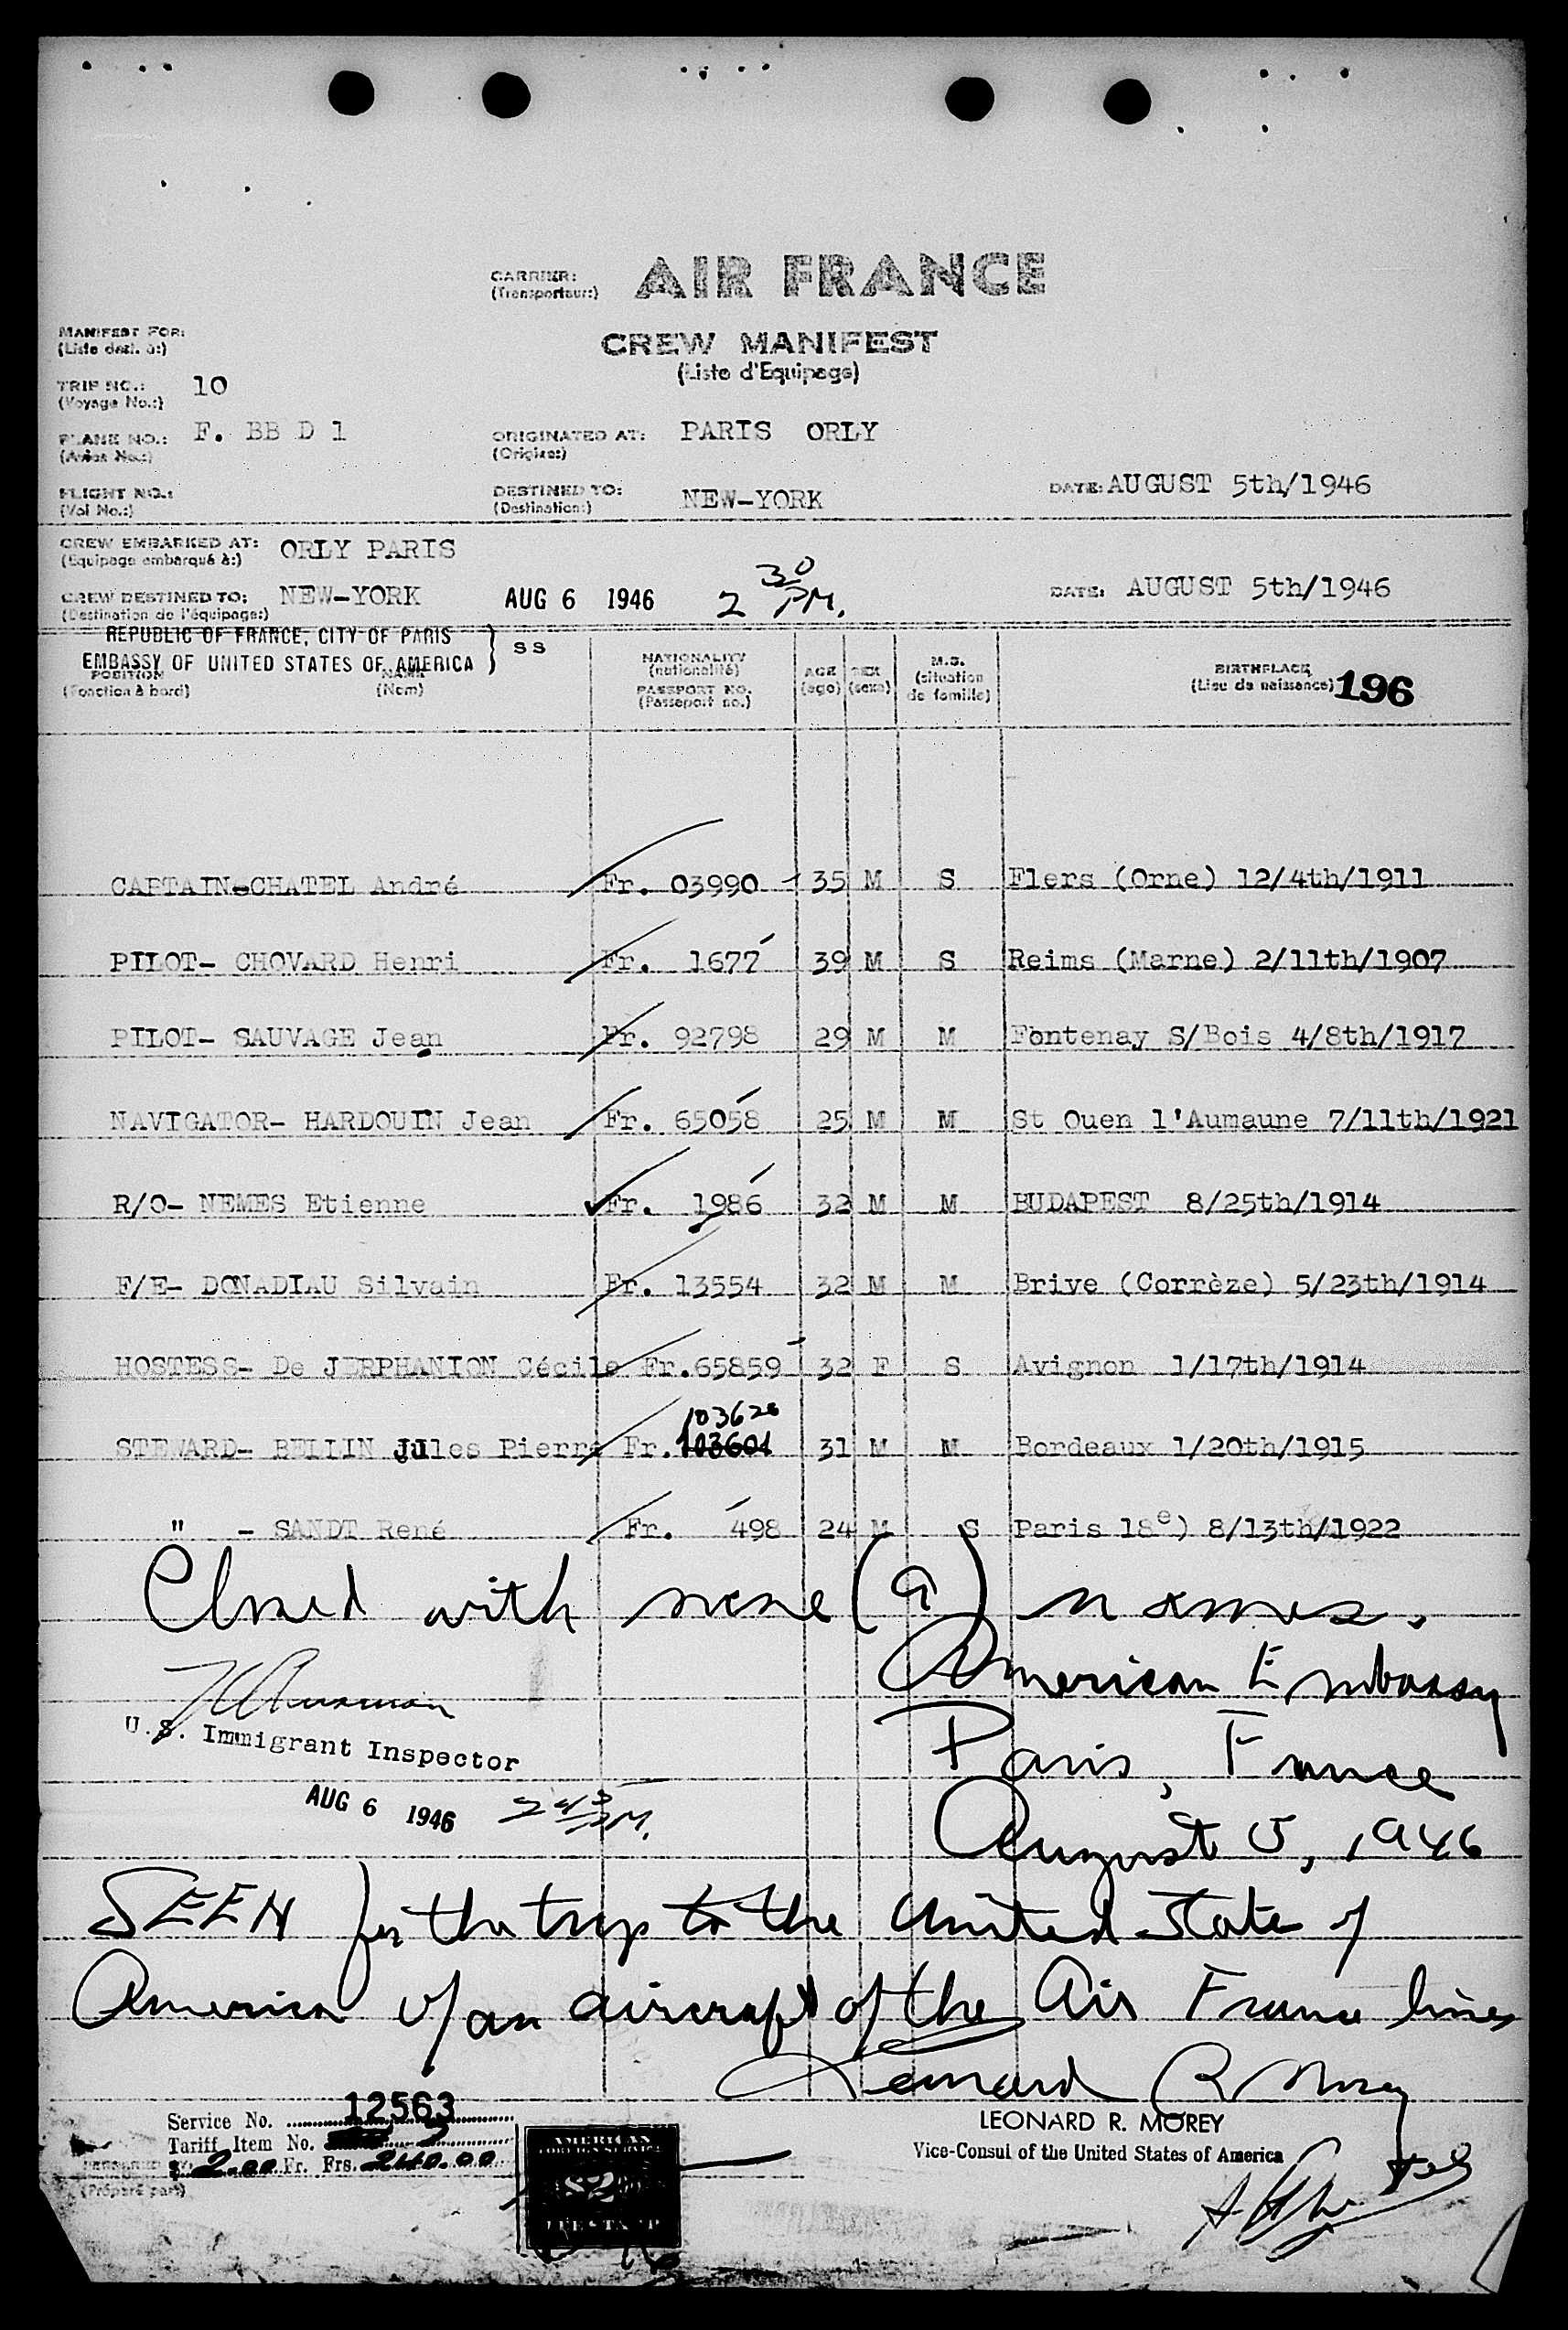 CARRIER: AIR FRANCE
(Transporteur:)
MANIFEST FOR:
(Liste dest. à:)
CREW MANIFEST
(Liste d'Equipage)
TRIP NO.: 10
(Voyage No.:)
PLANE NO.: F. BB D 1
(Avion No.:)
ORIGINATED AT: PARIS ORLY
(Origine:)
FLIGHT NO.:
(Vol No.:)
DESTINED TO: NEW-YORK
(Destination:)
DATE: AUGUST 5th/1946
CREW EMBARKED AT: ORLY PARIS
(Equipage embarqué à:)
CREW DESTINED TO: NEW-YORK AUG 6 1946 2 30 PM. DATE: AUGUST 5th/1946
(Destination de l'équipage:)
REPUBLIC OF FRANCE, CITY OF PARIS } SS
EMBASSY OF UNITED STATES OF AMERICA
POSITION NAME NATIONALITY AGE SEX M.S. BIRTHPLACE
(Fonction à bord) (Nom) (nationalité) (age) (sexe) (situation de famille) (Lieu de naissance) 196
PASSPORT NO.
(Passeport no.)
CAPTAIN-CHATEL André Fr. 03990 35 M S Flers (Orne) 12/4th/1911
PILOT- CHOVARD Henri Fr. 1677 39 M S Reims (Marne) 2/11th/1907
PILOT- SAUVAGE Jean Fr. 92798 29 M M Fontenay S/Bois 4/8th/1917
NAVIGATOR- HARDOUIN Jean Fr. 65058 25 M M St Ouen l'Aumaune 7/11th/1921
R/O- NEMES Etienne Fr. 1986 32 M M BUDAPEST 8/25th/1914
F/E- DONADIAU Silvain Fr. 13554 32 M M Brive (Corrèze) 5/23th/1914
HOSTESS- De JERPHANION Cécile Fr.65859 32 F S Avignon 1/17th/1914
103628
STEWARD- BELLIN Jules Pierre Fr. 103601 31 M M Bordeaux 1/20th/1915
" - SANDT René Fr. 498 24 M S Paris 18e) 8/13th/1922
Closed with nine (9) names.
American Embassy
U.S. Immigrant Inspector
Paris, France
AUG 6 1946 2 45 PM.
August 5, 1946
SEEN for the trip to the United State of
America of an aircraft of the Air France lines
Leonard R Morey
LEONARD R. MOREY
Vice-Consul of the United States of America
Service No. 12563
Tariff Item No.
$ 2.00 Fr. Frs. 240.00
(Préparé par:)
AMERICAN
FOREIGN SERVICE
$2
FEE STAMP